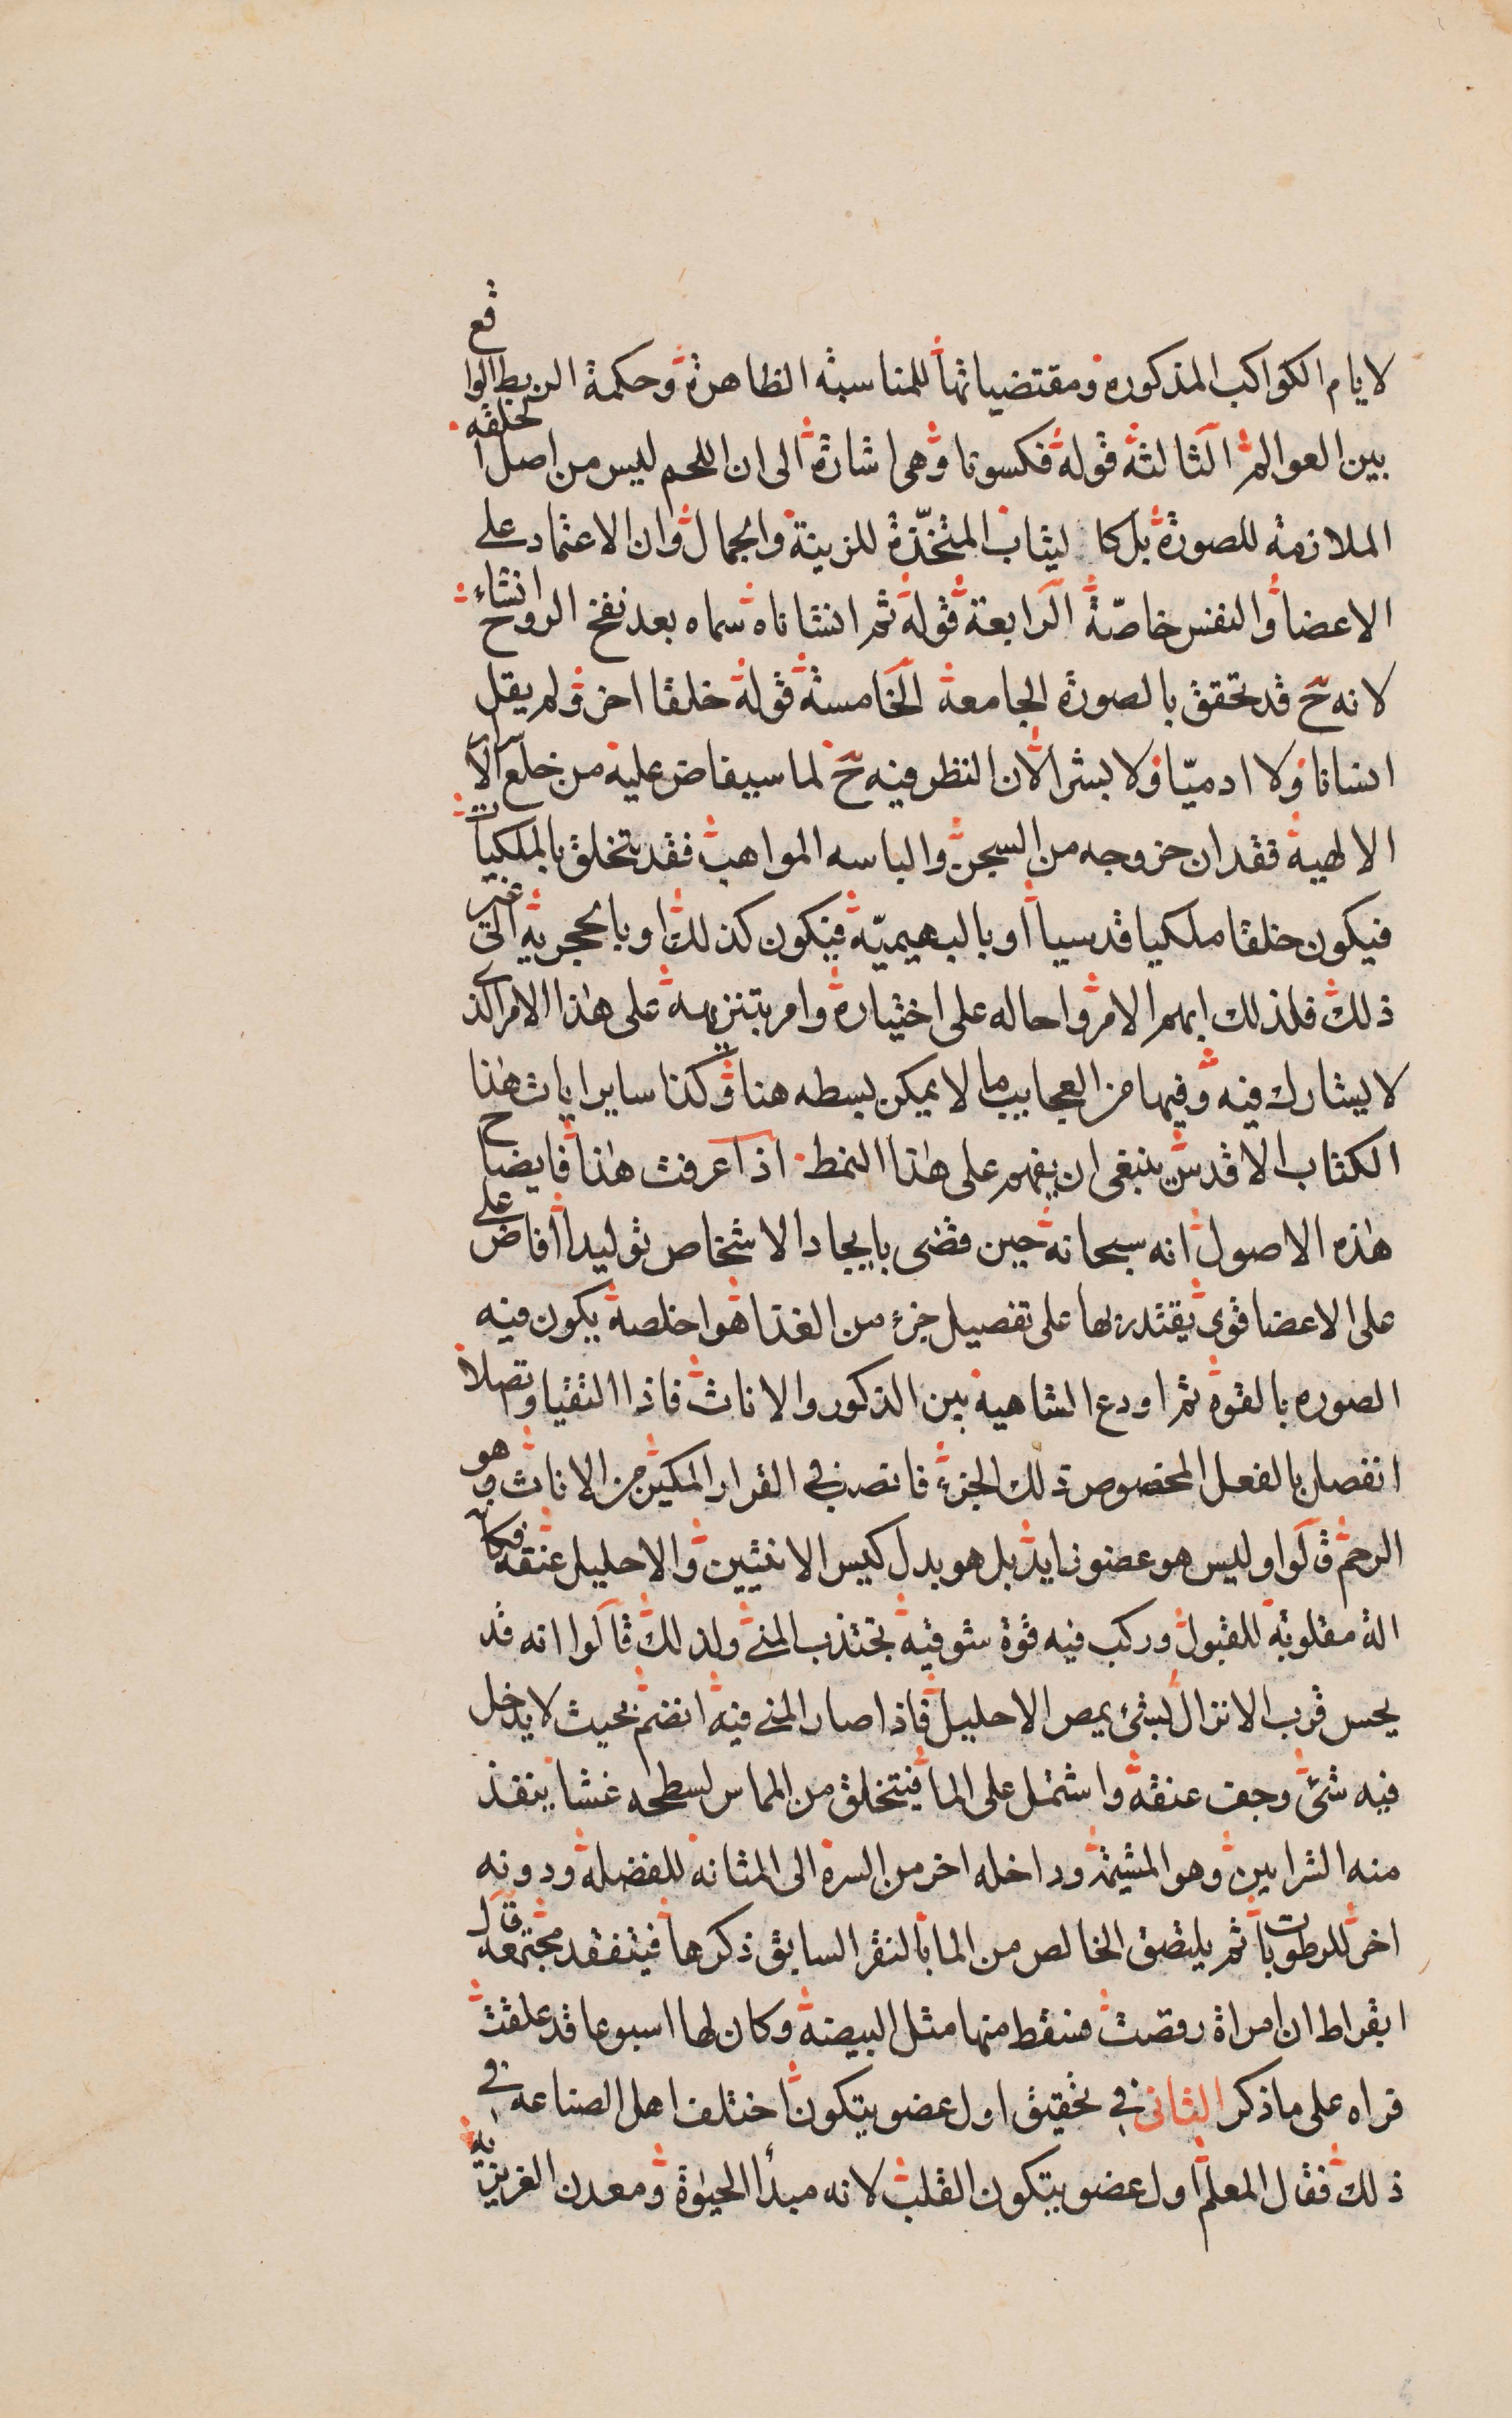 لايام الكواكب المذكوره ومقتضياتها للمناسبة الظاهرة وحكمة الربط الواقع
بين العوالم الثالثة قوله فكسونا وهي اشارة الى ان اللحم ليس من اصل الخلقه
الملازمة للصورة بل كالثياب المتخذة للزينة والجمال وان الاعتماد على
الاعضا والنفس خاصّة الرابعة قوله ثم انشاناه سماه بعد نفخ الروح انشاء
لانه ح قد تحقق بالصورة الجامعة الخامسة قوله خلقا اخر ولم يقل
انسانا ولا ادميّا ولا بشرا لان النظر فيه ح لما سيفاض عليه من خلع الاسرار
الالهية فقد ان خروجه من السجن والباسه المواهب فقد يتخلق بالملكيات
فيكون خلقا ملكيا قدسيا او بالبهيميّة فيكون كذلك او بالحجرية الى غير
ذلك فلذلك ابهم الامر واحاله على اختياره وامر بتنزيهه على هذا الامر الذى
لا يشارك فيه وفيها من العجايب ما لا يمكن بسطه هنا وكذا ساير ايات هذا
الكتاب الاقدس ينبغى ان يفهم على هذا النمط اذا عرفت هذا فايضاح
هذه الاصول انه سبحانه حين قضى بايجاد الاشخاص توليدا افاض على
على الاعضا قوى يقتدر بها على تفصيل جزء من الغذا هوا خلصه يكون فيه
الصوره بالقوة ثم اودع الشاهية بين الذكور والاناث فاذا التقيا وتصلا
انفصل بالفعل المخصوص ذلك الجزء فانصب في القرار المكين من الاناث وهو
الرحم قالوا وليس هو عضو زايد بل هو بدل كيس الانثيين والاحليل عنقه فكانه
الة مقلوبة للقبول وركب فيه قوة شوقية تجتذب المنى ولذلك قالوا انه قد
يحس قرب الانزال بشئ يمص الاحليل فاذا صار المنى فيه انضم بحيث لا يدخل
فيه شئ وجف عنقه واشتمل على الما فيتخلق من المماس لسطحه غشا ينفذ
منه الشرايين وهو المشيمة وداخله اخر من السرة الى المثانة للفضلة ودونه
اخر للرطوبات ثم يلتصق الخالص من الما بالنقر السابق ذكرها فيتفقد مجتمعة قال
ابقراط ان امراة رقصت فسقط منها مثل البيضة وكان لها اسبوعا قد علقت
فراه على ما ذكر الثانى في تحقيق اول عضو يتكون اختلف اهل الصناعه في
ذلك فقال المعلم اول عضو يتكون القلب لانه مبدأ الحيوة ومعدن الغريزية